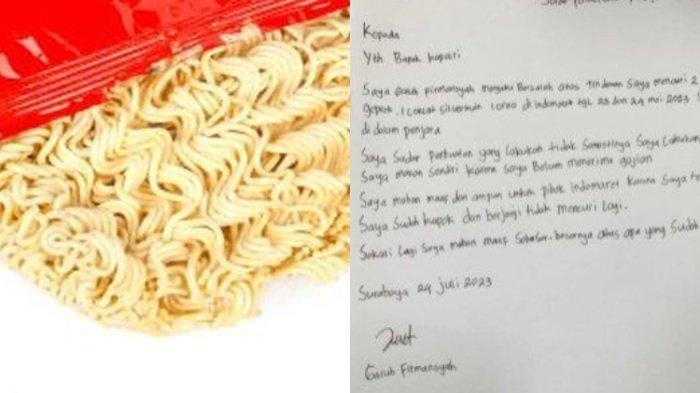 Kepada
Yth Bapak Kapolri
Saya Galuh Firmansyah mengaku Bersalah atas tindakan Saya mencuri 2
Geprek, 1 Coklat Silverkuin 1 oreo di indomaret tgl 23 dan 24 mei 2023
di dalam penjara
Saya Sadar Perbuatan yang lakukan tidak Semestinya Saya Lakukan
Saya makan Sendiri karna Saya Belum menerima gajian
Saya mohon maaf dan ampun untuk pihak indomaret karna Saya
Saya Sudah kapok dan berjanji tidak mencuri Lagi.
Sekali Lagi Saya mohon maaf Sebesar-besarnya atas apa yang Sudah
Surabaya 24 juli 2023
Galuh Firmansyah